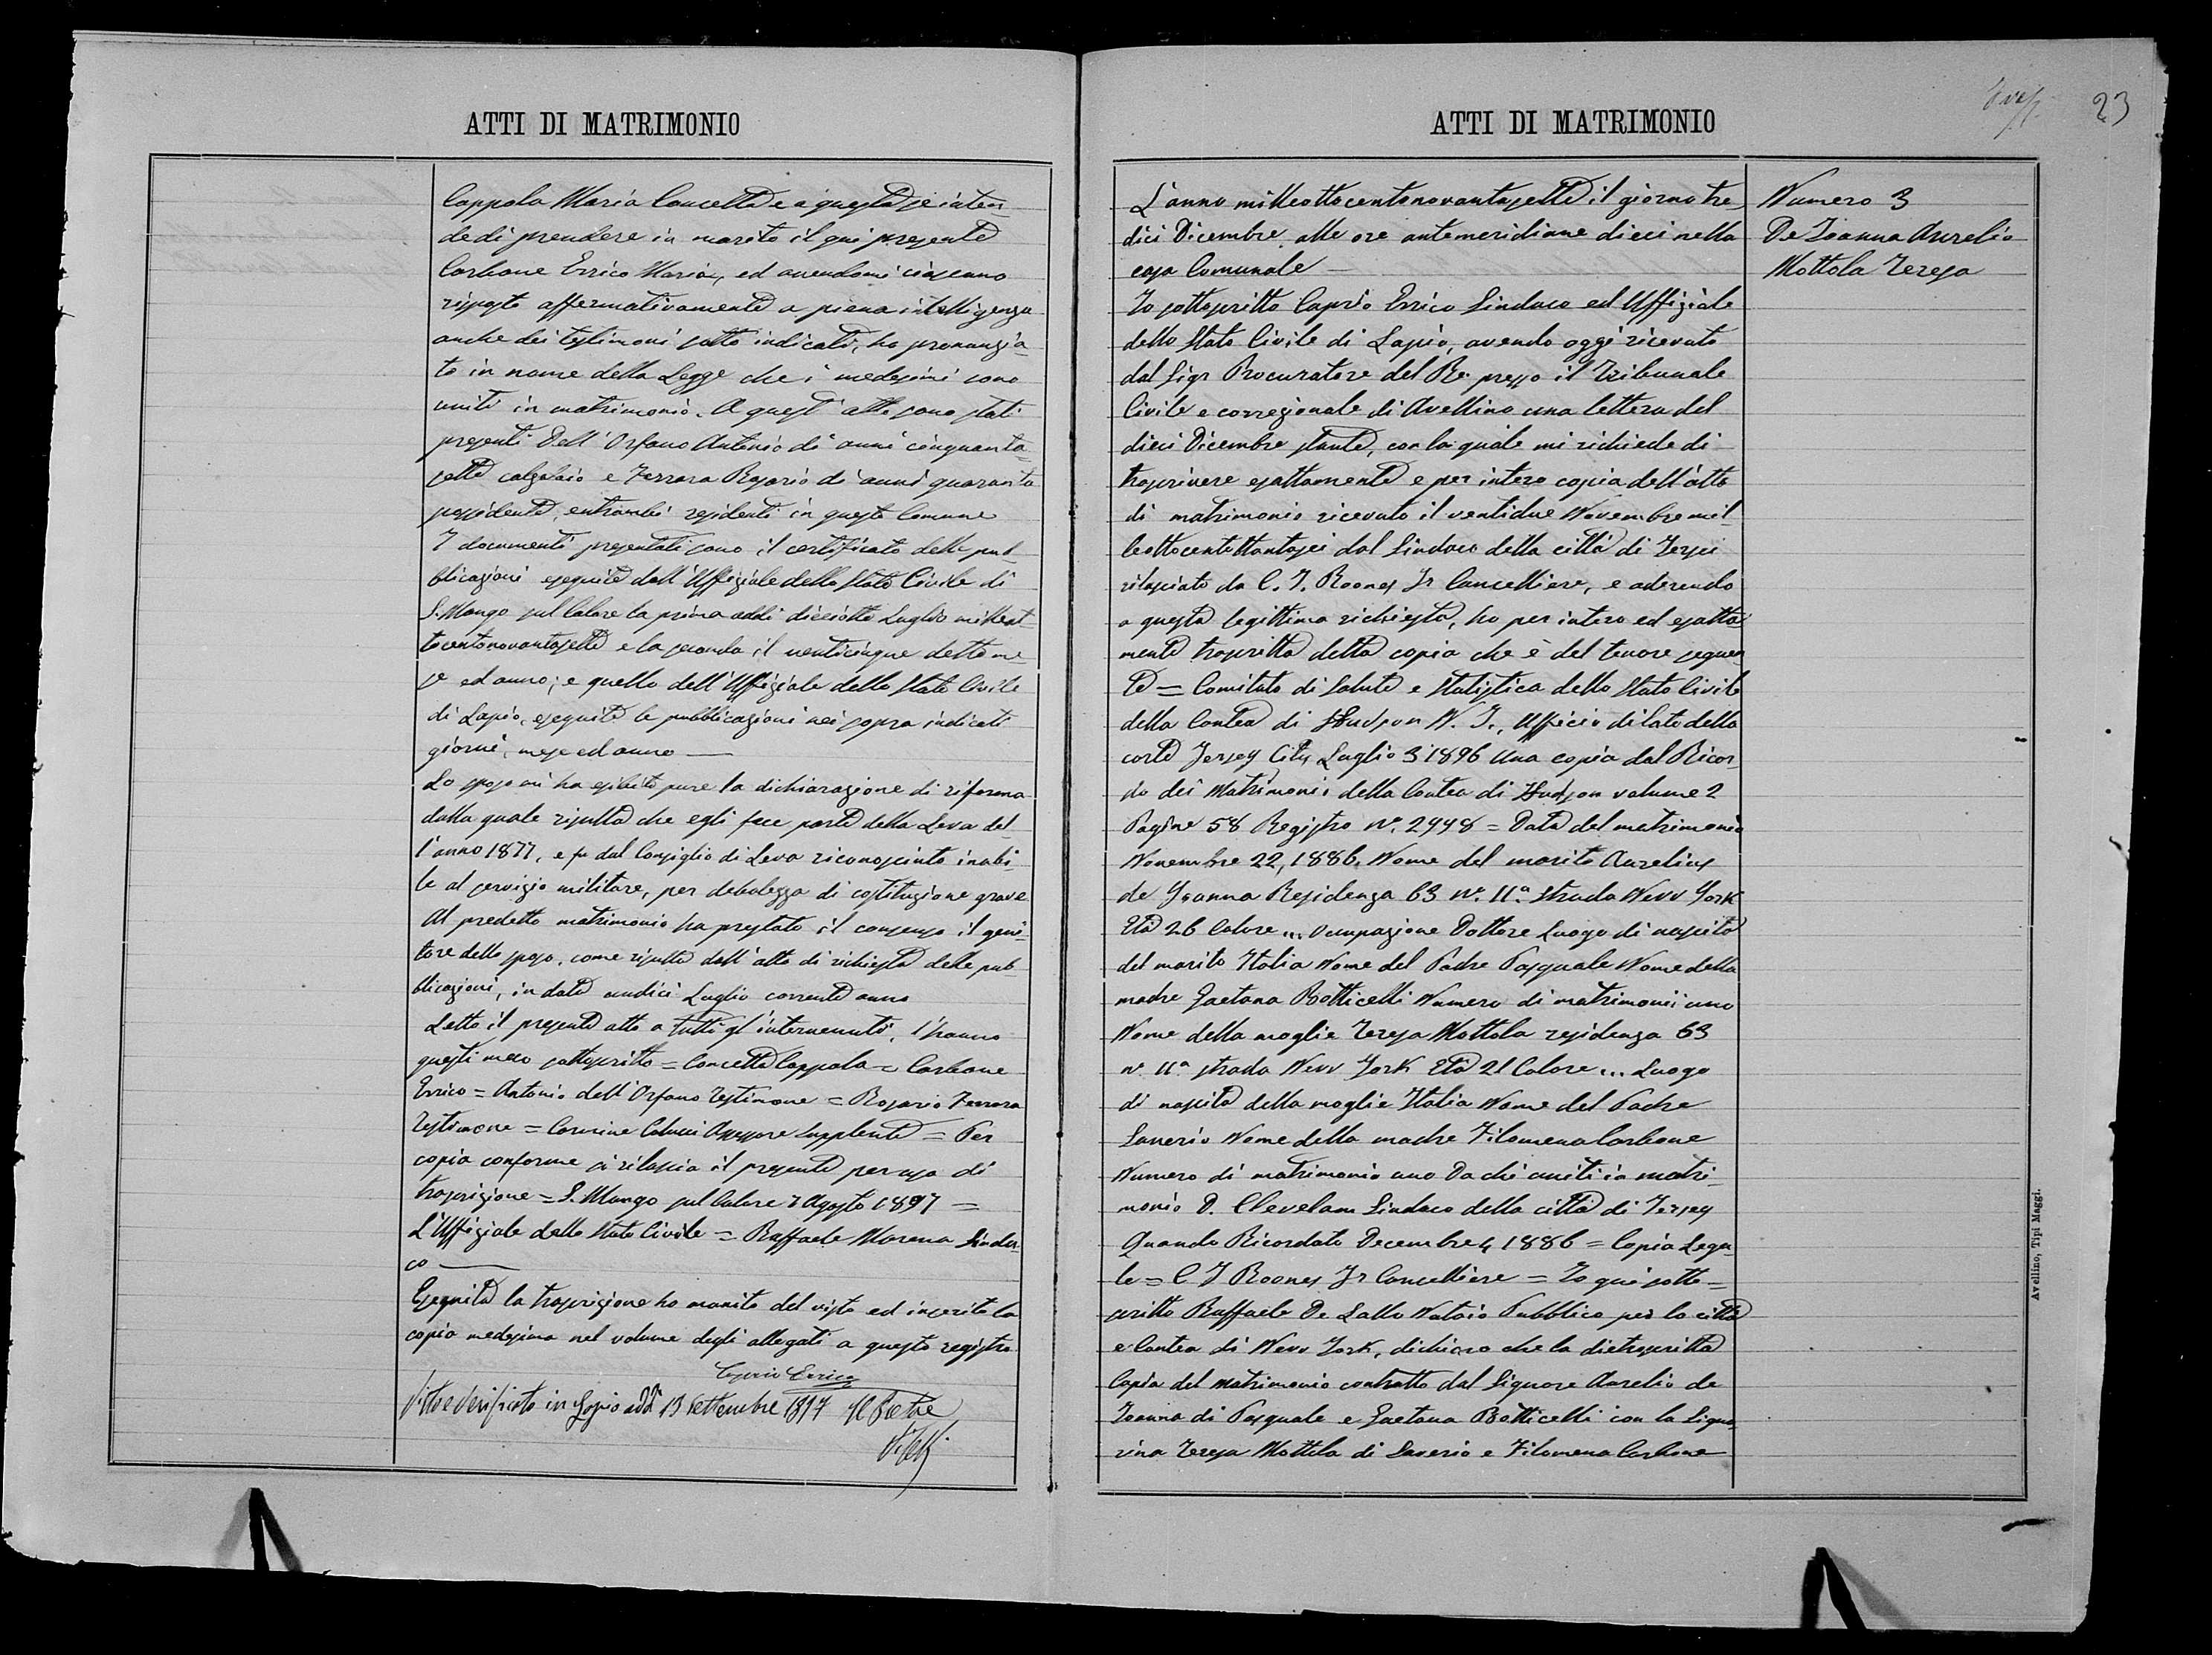 ATTI DI MATRIMONIO
Coppola Maria Concetta e a questa se inten-
de di prendere in marito il qui presente
Carbone Errico Maria, ed avendomi ciascuno
risposto affermativamente a piena intelligenza
anche dei testimoni sotto indicati, ho pronunzia-
to in nome della Legge che i medesimi sono
uniti in matrimonio. A quest'atto sono stati
presenti Dell'Orfano Antonio di anni cinquanta-
sette calzolaio e Ferrara Rosario di anni quaranta
possidente, entrambi residenti in questo Comune
I documenti presentati sono il certificato delle pub-
blicazioni eseguite dall'Uffiziale dello Stato Civile di
S. Mango sul Calore la prima addì diciotto Luglio milleot-
tocentonovantasette e la seconda il venticinque detto me-
se ed anno; e quello dell'Uffiziale dello Stato Civile
di Lapio, eseguite le pubblicazioni nei sopra indicati
giorni, mese ed anno
Lo sposo mi ha esibito pure la dichiarazione di riforma
dalla quale risulta che egli fece parte della Leva del-
l'anno 1877, e fu dal Consiglio di Leva riconosciuto inabi-
le al servizio militare, per debolezza di costituzione grave
Al predetto matrimonio ha prestato il consenso il geni-
tore dello sposo, come risulta dall'atto di richiesta delle pub-
blicazioni, in data undici Luglio corrente anno
Letto il presente atto a tutti gl'intervenuti, l'hanno
questi meco sottoscritto = Concetta Coppola = Carbone
Errico = Antonio dell'Orfano Testimone = Rosario Ferrara
Testimone = Carmine Colucci Assessore Supplente = Per
copia conforme si rilascia il presente per uso di
trascrizione = S. Mango sul Calore 7 Agosto 1897 =
L'Uffiziale dello Stato Civile = Raffaele Morena Sinda-
co
Eseguita la trascrizione ho munito del visto ed inserito la
copia medesima nel volume degli allegati a questo registro
Caprio Errico
Visto e verificato in Lapio addì 13 Settembre 1897 Il Pretore
ATTI DI MATRIMONIO
23
L'anno milleottocentonovantasette il giorno tre-
dici Dicembre alle ore antemeridiane dieci nella
casa Comunale
Io sottoscritto Caprio Errico Sindaco ed Uffiziale
dello Stato Civile di Lapio, avendo oggi ricevuto
dal Sigr Procuratore del Re presso il Tribunale
Civile e correzionale di Avellino una lettera del
dieci Dicembre stante, con la quale mi richiede di
trascrivere esattamente e per intero copia dell'atto
di matrimonio ricevuto il ventidue Novembre mil-
leottocentottantasei dal Sindaco della città di Jersei
rilasciato da C. J. Rooney Jr Cancelliere, e aderendo
a questa legittima richiesta, ho per intero ed esatta-
mente trascritta detta copia che è del tenore seguen-
te = Comitato di Salute e Statistica dello Stato Civile
della Contea di Hudson N. J., Ufficio di lato della
corte Jersey City Luglio 3 1896 Una copia dal Ricor-
do dei Matrimonii della Contea di Hudson volume 2
Pagine 58 Registro N.º 2998 = Data del matrimonio
Novembre 22, 1886. Nome del marito Aurelius
de Joanna Residenza 63 W. 11.ª Strada New York
Età 26 Colore ... Occupazione Dottore Luogo di nascita
del marito Italia Nome del Padre Pasquale Nome della
madre Gaetana Botticelli Numero di matrimonii uno
Nome della moglie Teresa Mottola residenza 63
W 11ª strada New York Età 21 Colore ... Luogo
di nascita della moglie Italia Nome del Padre
Saverio Nome della madre Filomena Carbone
Numero di matrimonio uno Da chi uniti in matri-
monio O. Clevelam Sindaco della città di Jersey
Quando Ricordato Decembre 4 1886 = Copia Lega-
le = C J Rooney Jr Cancelliere = Io qui sotto-
scritto Raffaele De Lallo Notaio Pubblico per la città
e Contea di New York, dichiaro che la dietroscritta
Copia del Matrimonio contratto dal Signore Aurelio de
Joanna di Pasquale e Gaetana Botticelli con la Signo-
rina Teresa Mottola di Saverio e Filomena Carbone
Numero 3
De Joanna Aurelio
Mottola Teresa
Avellino, Tipi Maggi.